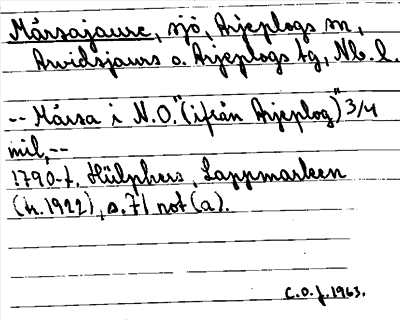 Mårsajaure, sjö, Arjeplogs sn,
Arvidsjaurs o. Arjeplogs tg, Nb. l.
-- Mårsa i N.O. "(ifrån Arjeplog)" 3/4
mil, --
1790-t. Hülphers, Lappmarken
(tr. 1922), s. 71 not (a).
C.O.J. 1963.